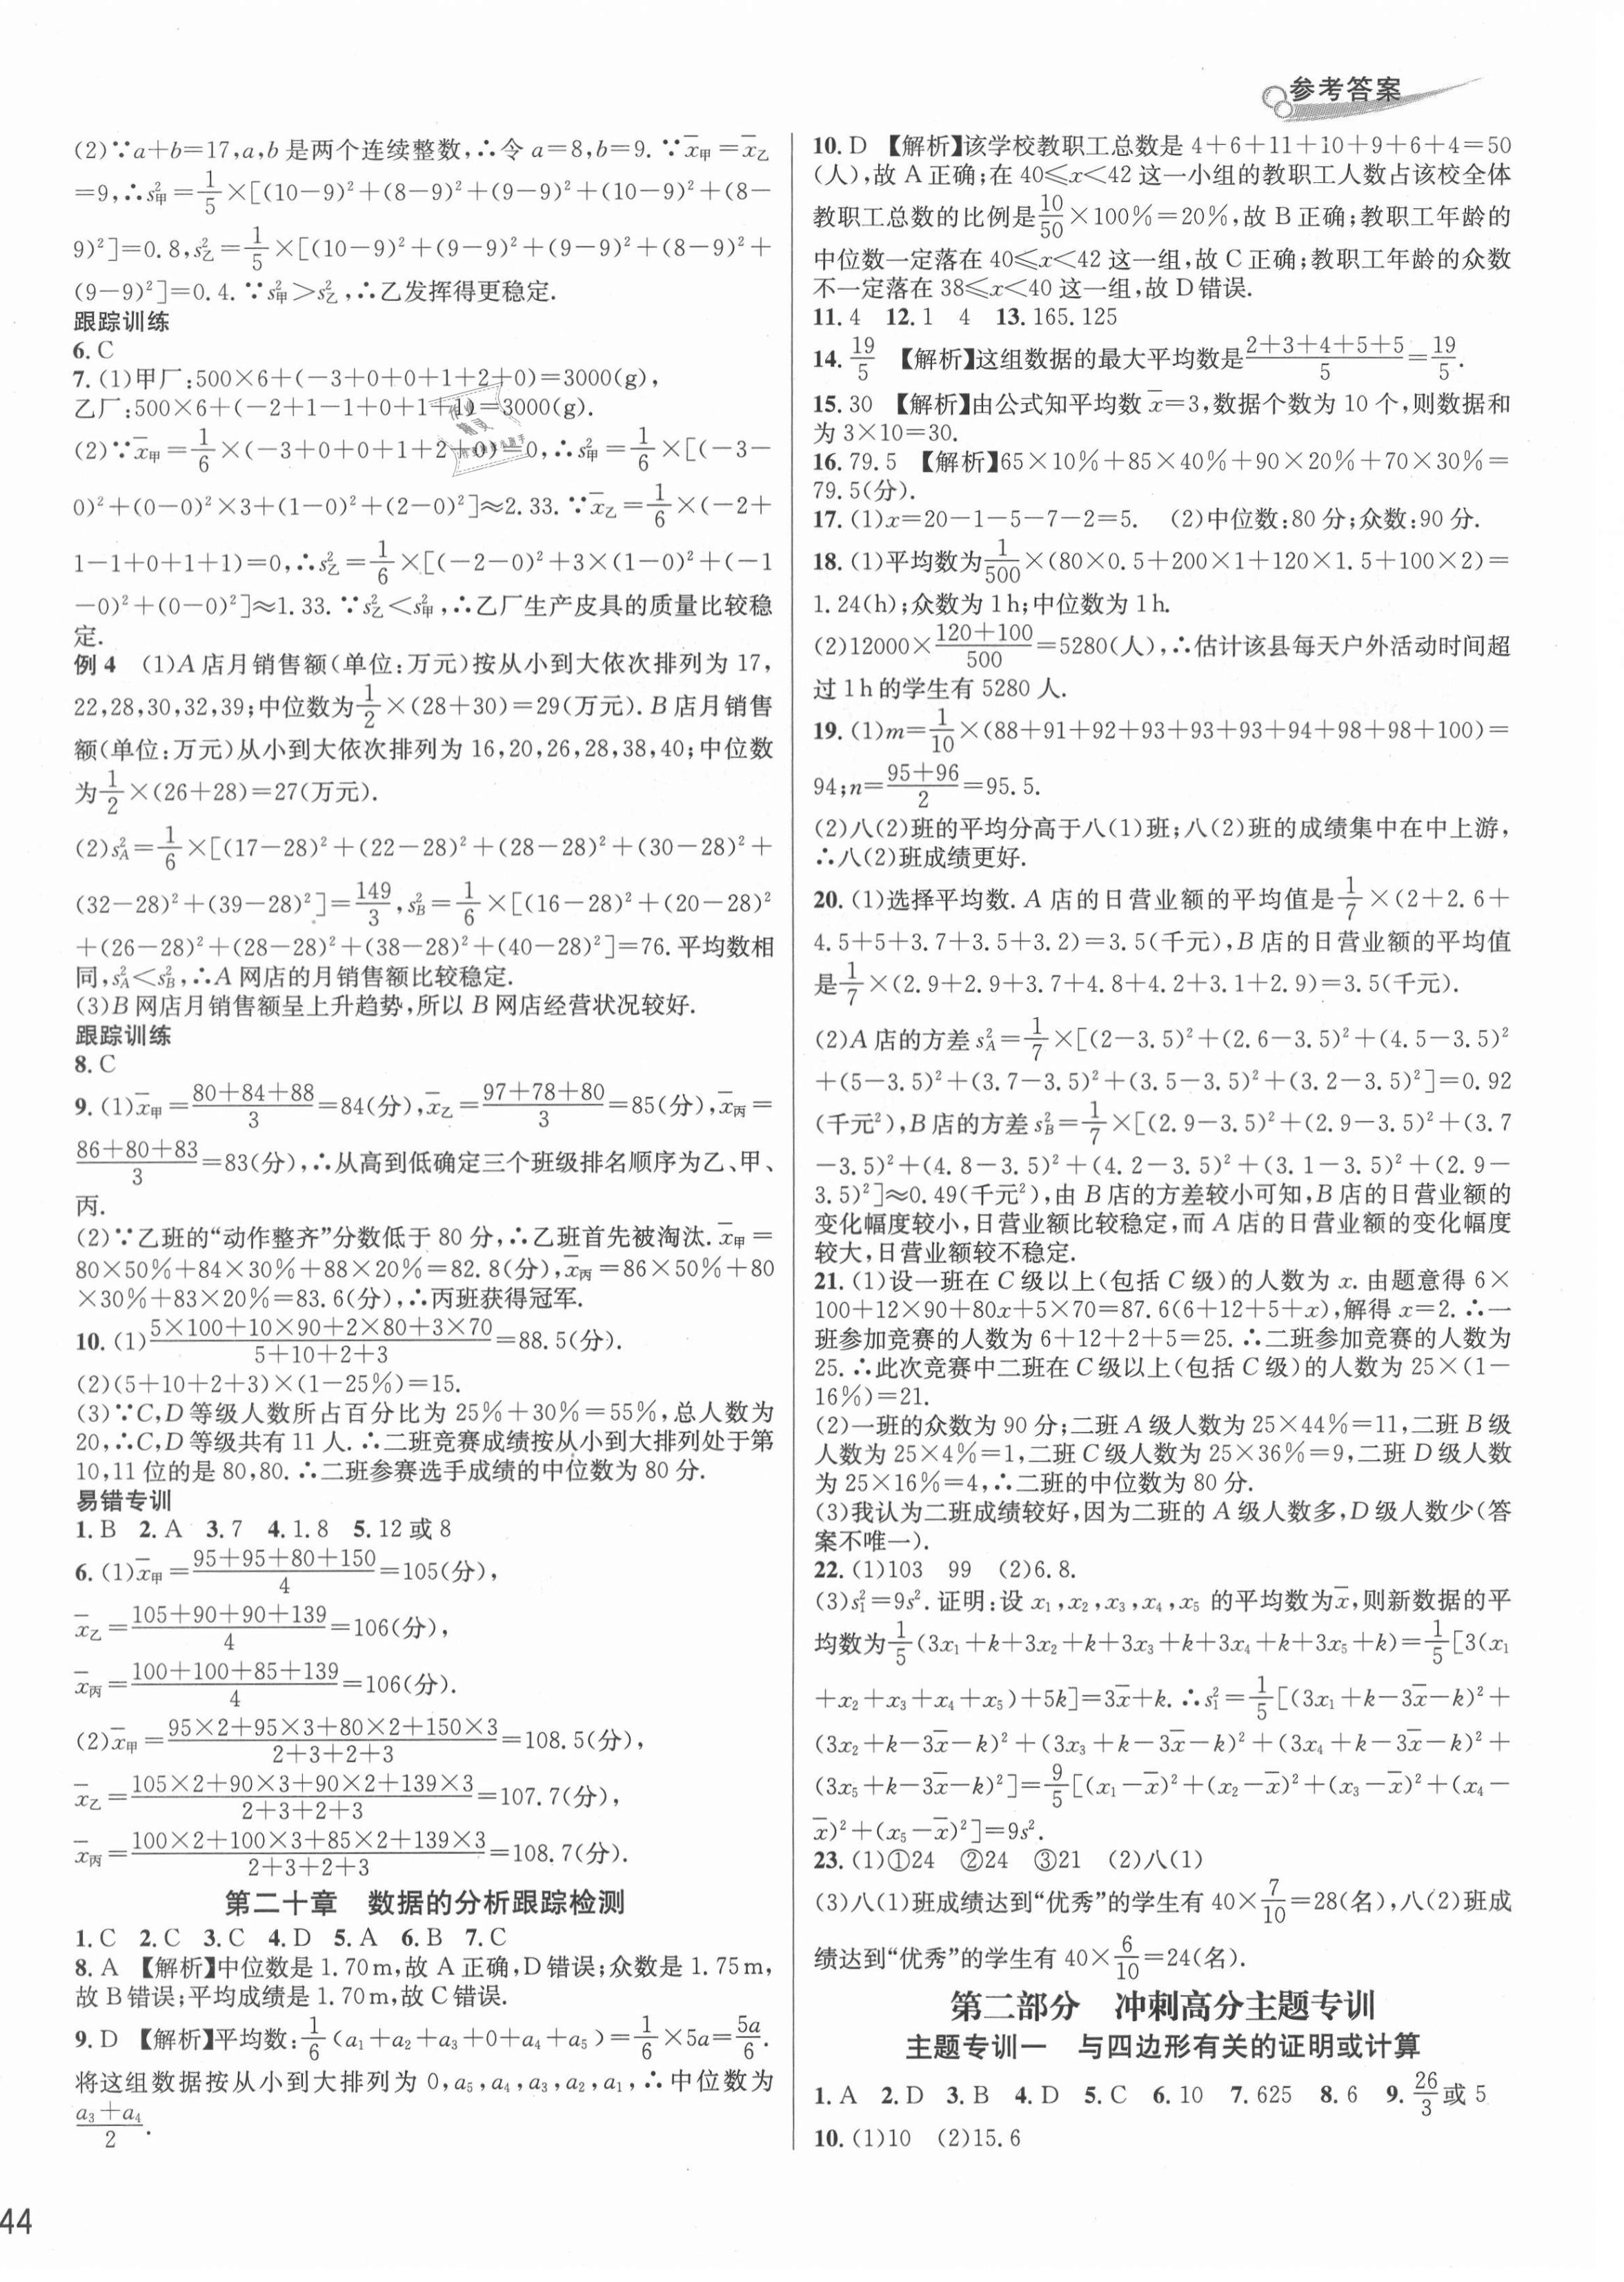 参考答案
(2)∵a+b=17,a,b 是两个连续整数,∴令 a=8,b=9. ∵x̄甲=x̄乙
=9,∴s²甲=1/5×[(10−9)²+(8−9)²+(9−9)²+(10−9)²+(8−
9)²]=0.8,s²乙=1/5×[(10−9)²+(9−9)²+(9−9)²+(8−9)²+
(9−9)²]=0.4. ∵s²甲>s²乙,∴乙发挥得更稳定.
跟踪训练
6. C
7. (1)甲厂:500×6+(−3+0+0+1+2+0)=3000(g),
乙厂:500×6+(−2+1−1+0+1+1)=3000(g).
(2)∵x̄甲=1/6×(−3+0+0+1+2+0)=0,∴s²甲=1/6×[(−3−
0)²+(0−0)²×3+(1−0)²+(2−0)²]≈2.33. ∵x̄乙=1/6×(−2+
1−1+0+1+1)=0,∴s²乙=1/6×[(−2−0)²+3×(1−0)²+(−1
−0)²+(0−0)²]≈1.33. ∵s²乙<s²甲,∴乙厂生产皮具的质量比较稳
定.
例 4 (1)A 店月销售额(单位:万元)按从小到大依次排列为 17,
22,28,30,32,39;中位数为1/2×(28+30)=29(万元). B 店月销售
额(单位:万元)从小到大依次排列为 16,20,26,28,38,40;中位数
为1/2×(26+28)=27(万元).
(2)s²A=1/6×[(17−28)²+(22−28)²+(28−28)²+(30−28)²+
(32−28)²+(39−28)²]=149/3,s²B=1/6×[(16−28)²+(20−28)²
+(26−28)²+(28−28)²+(38−28)²+(40−28)²]=76. 平均数相
同,s²A<s²B,∴A 网店的月销售额比较稳定.
(3)B 网店月销售额呈上升趋势,所以 B 网店经营状况较好.
跟踪训练
8. C
9. (1)x̄甲=(80+84+88)/3=84(分),x̄乙=(97+78+80)/3=85(分),x̄丙=
(86+80+83)/3=83(分),∴从高到低确定三个班级排名顺序为乙、甲、
丙.
(2)∵乙班的“动作整齐”分数低于 80 分,∴乙班首先被淘汰. x̄甲=
80×50%+84×30%+88×20%=82.8(分),x̄丙=86×50%+80
×30%+83×20%=83.6(分),∴丙班获得冠军.
10. (1)(5×100+10×90+2×80+3×70)/(5+10+2+3)=88.5(分).
(2)(5+10+2+3)×(1−25%)=15.
(3)∵C,D 等级人数所占百分比为 25%+30%=55%,总人数为
20,∴C,D 等级共有 11 人. ∴二班竞赛成绩按从小到大排列处于第
10,11 位的是 80,80. ∴二班参赛选手成绩的中位数为 80 分.
易错专训
1. B 2. A 3. 7 4. 1.8 5. 12 或 8
6. (1)x̄甲=(95+95+80+150)/4=105(分),
x̄乙=(105+90+90+139)/4=106(分),
x̄丙=(100+100+85+139)/4=106(分).
(2)x̄甲=(95×2+95×3+80×2+150×3)/(2+3+2+3)=108.5(分),
x̄乙=(105×2+90×3+90×2+139×3)/(2+3+2+3)=107.7(分),
x̄丙=(100×2+100×3+85×2+139×3)/(2+3+2+3)=108.7(分).
第二十章 数据的分析跟踪检测
1. C 2. C 3. C 4. D 5. A 6. B 7. C
8. A 【解析】中位数是 1.70 m,故 A 正确,D 错误;众数是 1.75 m,
故 B 错误;平均成绩是 1.70 m,故 C 错误.
9. D 【解析】平均数:1/6(a₁+a₂+a₃+0+a₄+a₅)=1/6×5a=5a/6.
将这组数据按从小到大排列为 0,a₅,a₄,a₃,a₂,a₁,∴中位数为
(a₃+a₄)/2.
44
10. D 【解析】该学校教职工总数是 4+6+11+10+9+6+4=50
(人),故 A 正确;在 40≤x<42 这一小组的教职工人数占该校全体
教职工总数的比例是10/50×100%=20%,故 B 正确;教职工年龄的
中位数一定落在 40≤x<42 这一组,故 C 正确;教职工年龄的众数
不一定落在 38≤x<40 这一组,故 D 错误.
11. 4 12. 1 4 13. 165.125
14. 19/5 【解析】这组数据的最大平均数是(2+3+4+5+5)/5=19/5.
15. 30 【解析】由公式知平均数 x̄=3,数据个数为 10 个,则数据和
为 3×10=30.
16. 79.5 【解析】65×10%+85×40%+90×20%+70×30%=
79.5(分).
17. (1)x=20−1−5−7−2=5. (2)中位数:80 分;众数:90 分.
18. (1)平均数为1/500×(80×0.5+200×1+120×1.5+100×2)=
1.24(h);众数为 1 h;中位数为 1 h.
(2)12000×(120+100)/500=5280(人),∴估计该县每天户外活动时间超
过 1 h 的学生有 5280 人.
19. (1)m=1/10×(88+91+92+93+93+93+94+98+98+100)=
94;n=(95+96)/2=95.5.
(2)八(2)班的平均分高于八(1)班;八(2)班的成绩集中在中上游,
∴八(2)班成绩更好.
20. (1)选择平均数. A 店的日营业额的平均值是1/7×(2+2.6+
4.5+5+3.7+3.5+3.2)=3.5(千元),B 店的日营业额的平均值
是1/7×(2.9+2.9+3.7+4.8+4.2+3.1+2.9)=3.5(千元).
(2)A 店的方差 s²A=1/7×[(2−3.5)²+(2.6−3.5)²+(4.5−3.5)²
+(5−3.5)²+(3.7−3.5)²+(3.5−3.5)²+(3.2−3.5)²]=0.92
(千元²),B 店的方差 s²B=1/7×[(2.9−3.5)²+(2.9−3.5)²+(3.7
−3.5)²+(4.8−3.5)²+(4.2−3.5)²+(3.1−3.5)²+(2.9−
3.5)²]≈0.49(千元²),由 B 店的方差较小可知,B 店的日营业额的
变化幅度较小,日营业额比较稳定,而 A 店的日营业额的变化幅度
较大,日营业额较不稳定.
21. (1)设一班在 C 级以上(包括 C 级)的人数为 x. 由题意得 6×
100+12×90+80x+5×70=87.6(6+12+5+x),解得 x=2. ∴一
班参加竞赛的人数为 6+12+2+5=25. ∴二班参加竞赛的人数为
25. ∴此次竞赛中二班在 C 级以上(包括 C 级)的人数为 25×(1−
16%)=21.
(2)一班的众数为 90 分;二班 A 级人数为 25×44%=11,二班 B 级
人数为 25×4%=1,二班 C 级人数为 25×36%=9,二班 D 级人数
为 25×16%=4,∴二班的中位数为 80 分.
(3)我认为二班成绩较好,因为二班的 A 级人数多,D 级人数少(答
案不唯一).
22. (1)103 99 (2)6.8.
(3)s₁²=9s². 证明:设 x₁,x₂,x₃,x₄,x₅ 的平均数为x̄,则新数据的平
均数为1/5(3x₁+k+3x₂+k+3x₃+k+3x₄+k+3x₅+k)=1/5[3(x₁
+x₂+x₃+x₄+x₅)+5k]=3x̄+k. ∴s₁²=1/5[(3x₁+k−3x̄−k)²+
(3x₂+k−3x̄−k)²+(3x₃+k−3x̄−k)²+(3x₄+k−3x̄−k)²+
(3x₅+k−3x̄−k)²]=9/5[(x₁−x̄)²+(x₂−x̄)²+(x₃−x̄)²+(x₄−
x̄)²+(x₅−x̄)²]=9s².
23. (1)①24 ②24 ③21 (2)八(1)
(3)八(1)班成绩达到“优秀”的学生有 40×7/10=28(名),八(2)班成
绩达到“优秀”的学生有 40×6/10=24(名).
第二部分 冲刺高分主题专训
主题专训一 与四边形有关的证明或计算
1. A 2. D 3. B 4. D 5. C 6. 10 7. 625 8. 6 9. 26/3或 5
10. (1)10 (2)15.6